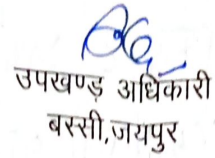 उपखण्ड़ अधिकारी
बस्सी,जयपुर